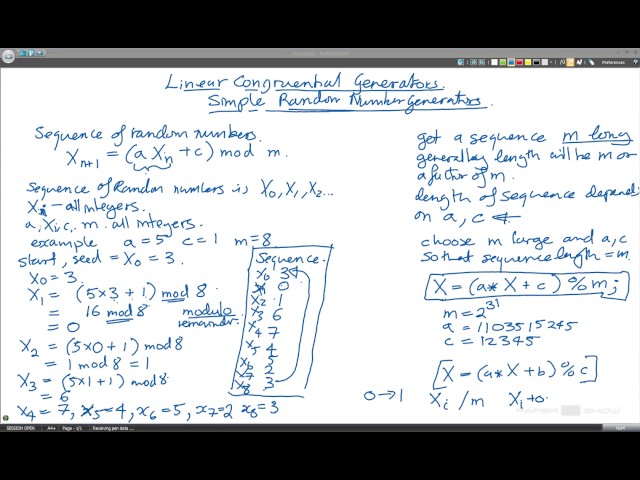 Linear Congruential Generators.
Simple Random Number Generators.
Sequence of random numbers.
X n+1 = (a Xn + c) mod m.
Sequence of Random numbers is X0, X1, X2...
Xi - all integers.
a, Xi, c, m. all integers.
example a = 5 c = 1 m = 8
start, seed = X0 = 3.
X0 = 3.
X1 = (5x3 + 1) mod 8
= 16 mod 8
= 0
modulo
remainder.
X2 = (5x0 + 1) mod 8
= 1 mod 8 = 1
X3 = (5x1 + 1) mod 8
= 6
X4 = 7, x5 = 4, x6 = 5, x7 = 2 x8 = 3
Sequence.
X0 3
X1 0
X2 1
X3 6
X4 7
X5 4
X6 5
X7 2
X8 3
get a sequence m long
generally length will be m or
a factor of m.
length of sequence depends
on a, c
choose m large and a, c
so that sequence length = m.
X = (a * X + c) % m;
m = 2^31
a = 1103515245
c = 12345
X = (a * X + b) % c
0 → 1 Xi / m Xi + 0.
PAPER SHOW
SESSION OPEN A4+ Page - 1/1 Receiving pen data ...
Preferences